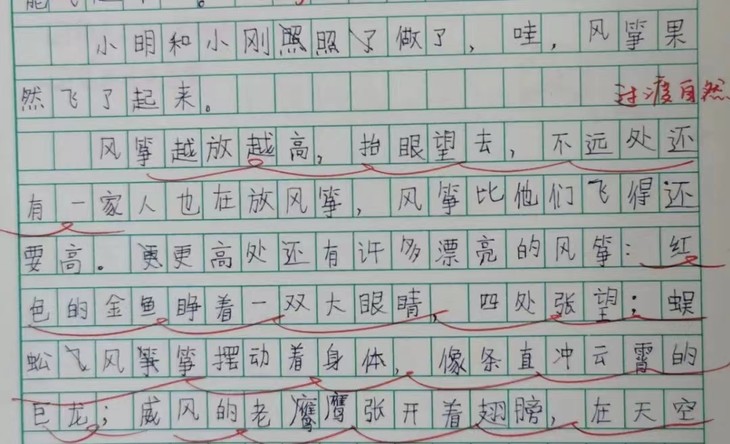 小明和小刚照照了做了，哇，风筝果
然飞了起来。
过渡自然
风筝越放越高，抬眼望去，不远处还
有一家人也在放风筝，风筝比他们飞得还
要高。更高处还有许多漂亮的风筝：红
色的金鱼睁着一双大眼睛，四处张望；蜈
蚣飞风筝摆动着身体，像条直冲云霄的
巨龙；威风的老鹰张开着翅膀，在天空